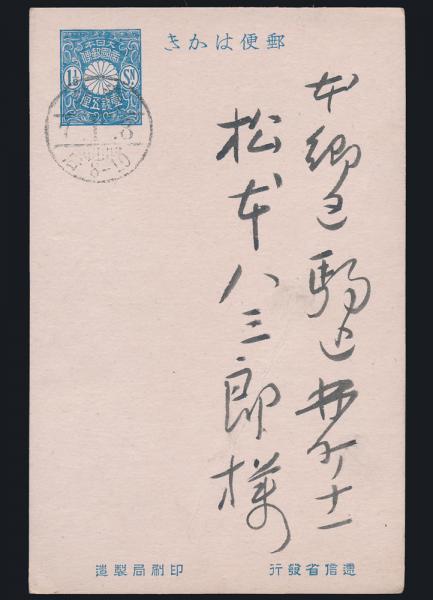 郵便はかき
大日本
帝國郵便
1½ Sn.
壹錢五厘
8-10
本郷区駒込林町十一
松本八三郎様
遞信省發行
印刷局製造